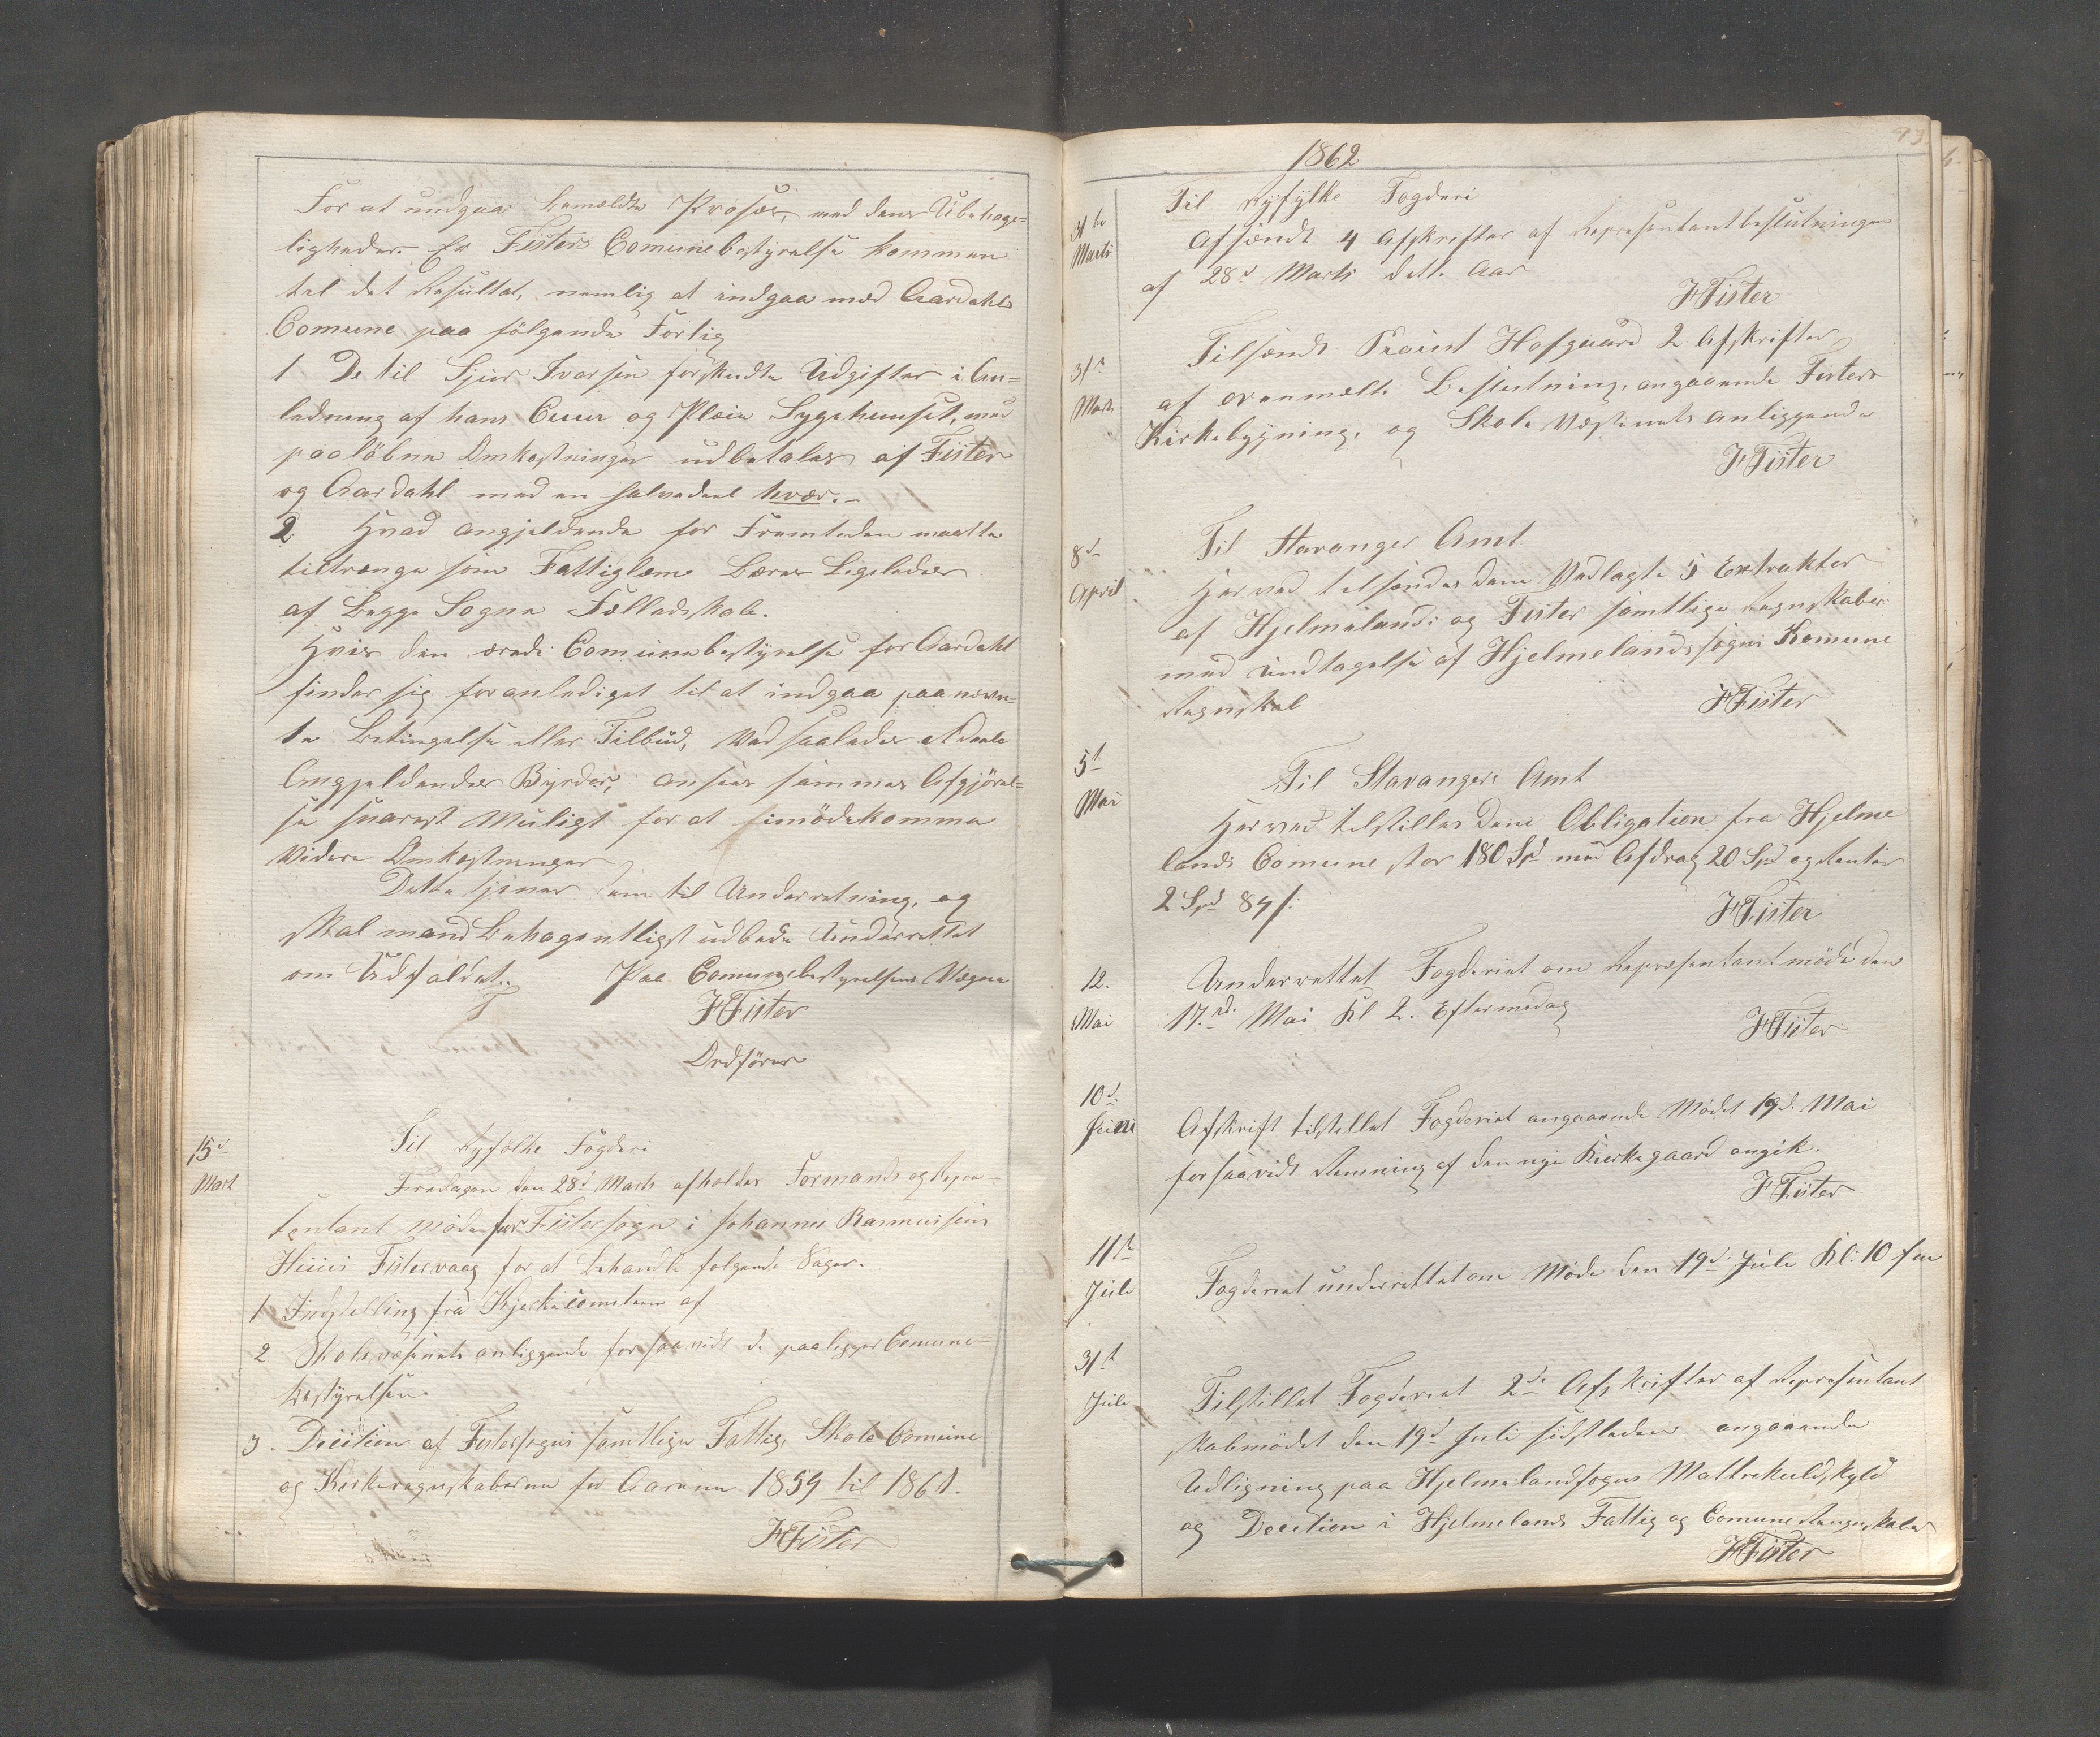 For at undgaa bemældte Prosæs, med dens Ubehage-
ligheder. Er Fisters Comunebestyrelse kommen
til det Resultat, nemlig at indgaa med Aardahls
Comune paa følgende Forlig
1 De til Sjur Iversen forskudte Udgifter i An-
ledning af hans Cuur og Pleie Sygehuuset, med
paaløbne Omkostninger udbetales af Fister
og Aardahl med en halvedeel hver.-
2. Hvad angjeldende for Fremtiden maatte
tiltrenge som Fattiglem Bæres Ligeledes
af Begge Sogne Fælledskab.
Hvis den ærede Comunebestyrelse for Aardahl
finder sig foranlediget til at indgaa paa nævn-
te Betingelse eller Tilbud, Ved saaledes at deele
Angjeldendes Byrder, ansees sammes Afgjørel-
se snarest Muligt for at imødekomme
Videre Omkostninger
Dette tjener dem til Underretning, og
skal mand Behagentligst udbede Underrettet
om Udfaldet. Paa Comunebestyrelsens Vegne
HFister
Ordfører
15d
Mart
Til Ryfølke Fogderi
Fredagen den 28d Marts afholdes Formands og Repre-
sentant møde for Fister sogn i Johannes Rasmussens
Huus Fistervaag for at Behandle følgende Sager.
1 Indstelling fra Kjerkecomiteen af
2 Skolevæsenets anliggende forsaavidt de paaligger Comune-
bestyrelsen.
3. Decition af Fistersogns samtlige Fattig, Skole Comune
og Kirkeregnskaberne for Aarene 1859 til 1861.
HFister
1862
31te
Marts
Til Ryfylke Fogderi
Afsendt 4 Afskrifter af Representantbeslutninger
af 28d Marts dette Aar
HFister
31t
Marts
Tilsendt Proust Hofgaard 2 Afskrifter
af ovenmelte Beslutning, angaaende Fisters
Kirkebygning, og Skole Væsenets Anliggende
HFister
8d
April
Til Stavanger Amt
Herved tilsendes dem Vedlagte 5 Extrakter
af Hjelmelands og Fister samtlige Regnskaber
med undtagelse af Hjelmelands sogns Komune
Regnskab
HFister
5t
Mai
Til Stavanger Amt
Herved tilstilles dem Obligation fra Hjelme
lands Comune stor 180 Spd med Afdrag 20 Spd og Renter
2 Spd 84 s:
HFister
12.
Mai
Underrettet Fogderiet om Representantmøde den
17.de Mai Kl 2. Eftermedag
HFister
10d
Juni
Afskrift tilstellet Fogderiet angaaende Mødet 19d. Mai
forsaavidt Rømning af den nye Kierkegaard angik.
HFister
11te
Jule
Fogderiet underrettet om Møde den 19d. Jule Kl: 10 fm
31t
Jule
Tilstillet Fogderiet 2de Afskrifter af Representant
skabmødet den 19d Juli sidstleden angaaende
Udligning paa Hjelmelandsogns Mattrekulskyld
og Decition i Hjelmelands Fattig og Comune Rengskaber
HFister